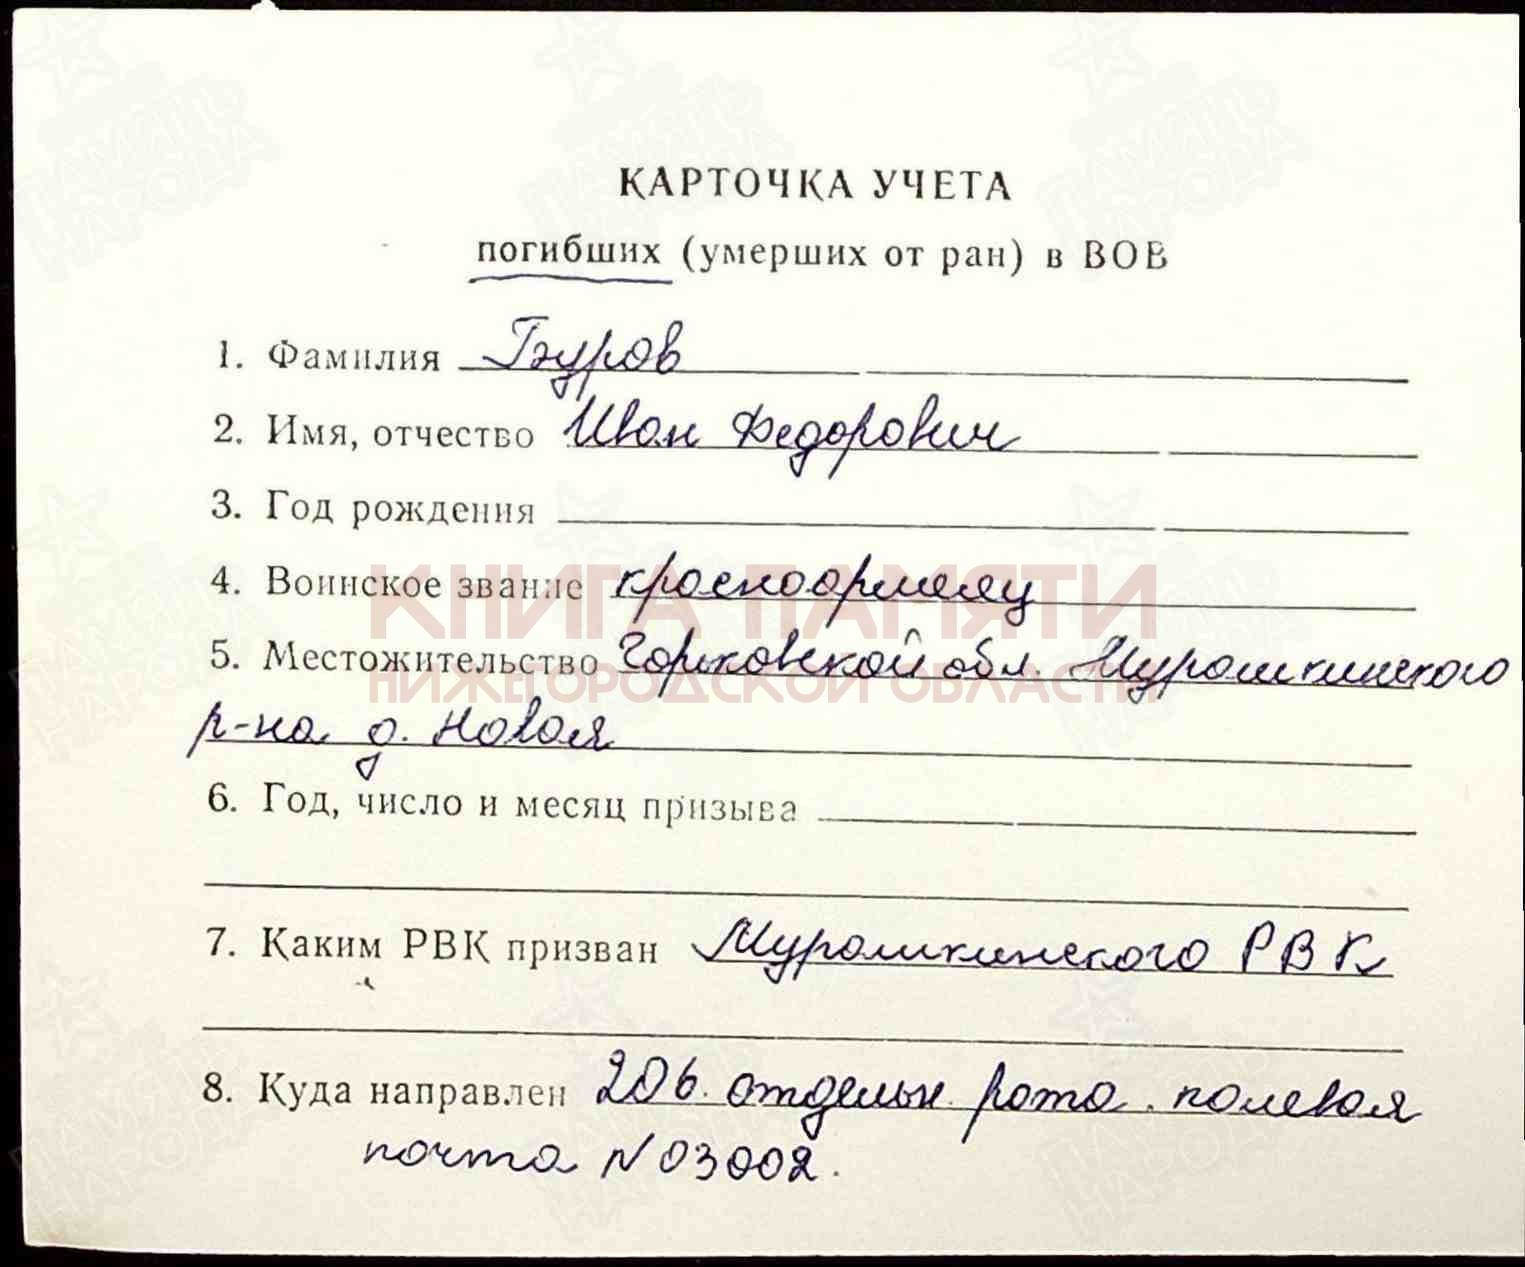 КАРТОЧКА УЧЕТА
погибших (умерших от ран) в ВОВ
1. Фамилия Гзуров
2. Имя, отчество Иван Федорович
3. Год рождения
4. Воинское звание красноармеец
5. Местожительство Горьковской обл. Мурашкинского
р-на д. Новая
6. Год, число и месяц призыва
7. Каким РВК призван Мурашкинского РВК
8. Куда направлен 206. отдельн. рота. полевая
почта N 03002.
КНИГА ПАМЯТИ
НИЖЕГОРОДСКОЙ ОБЛАСТИ
ПАМЯТЬ НАРОДА